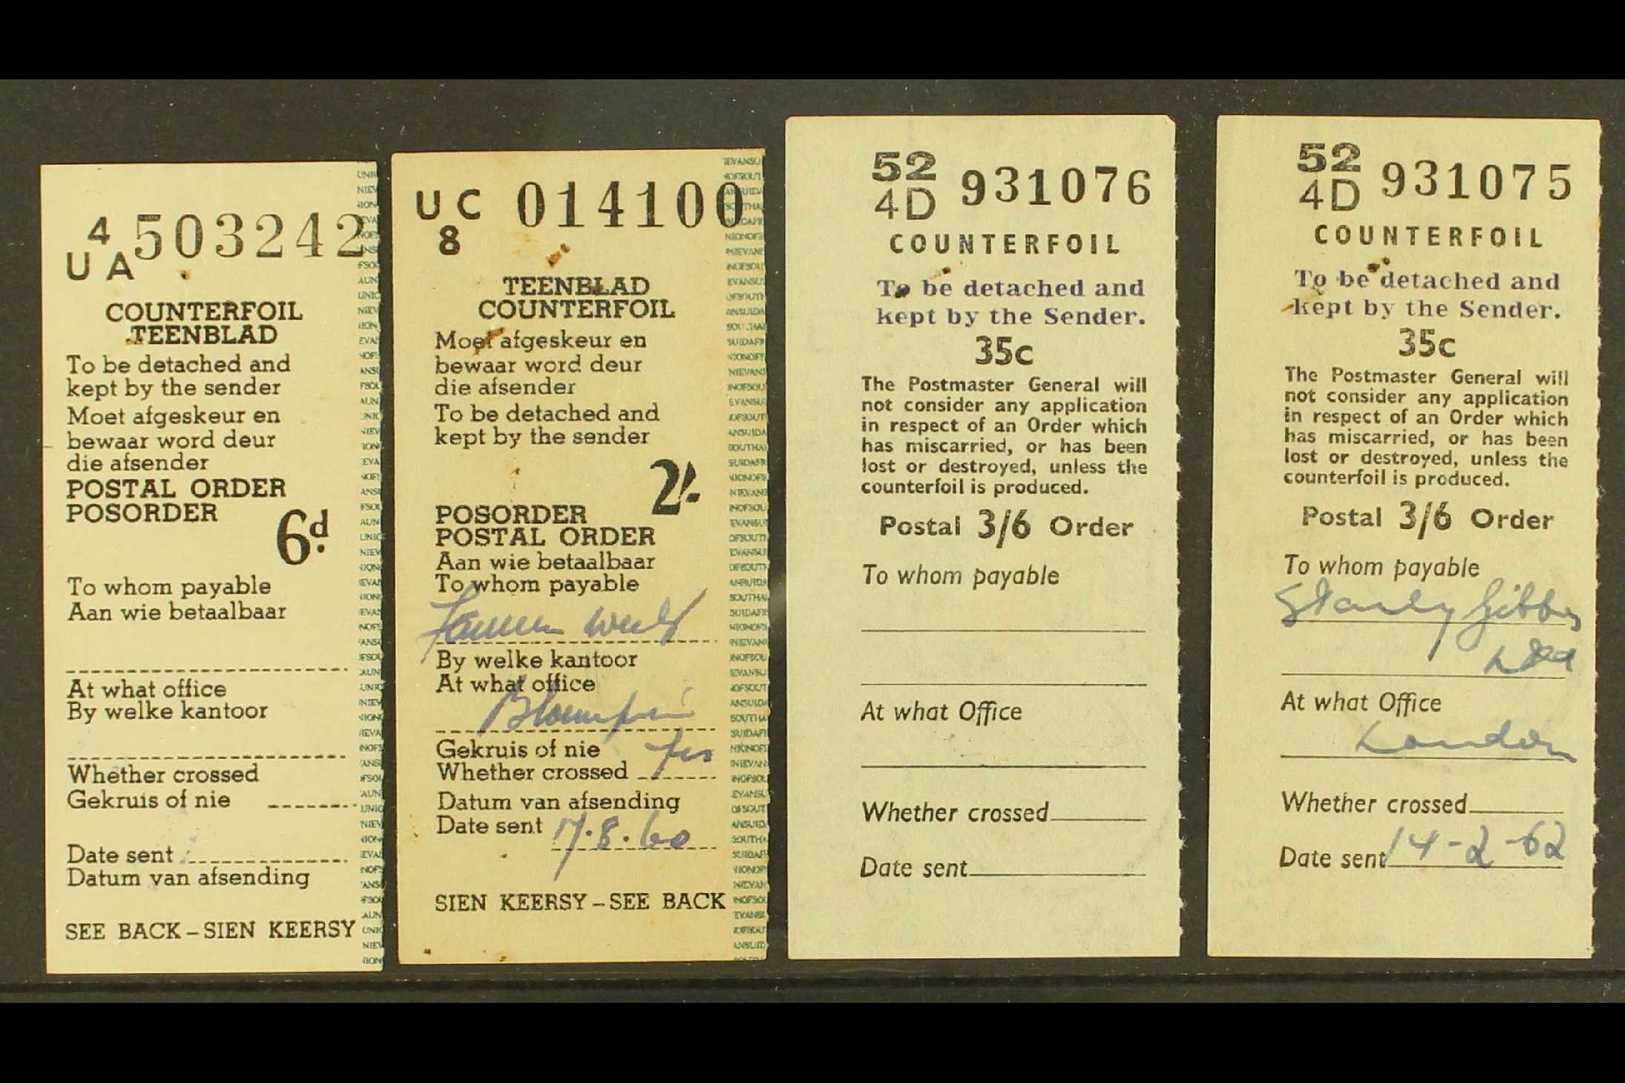 4
UA 503242
COUNTERFOIL
TEENBLAD
To be detached and
kept by the sender
Moet afgeskeur en
bewaar word deur
die afsender
POSTAL ORDER
POSORDER
6d.
To whom payable
Aan wie betaalbaar
At what office
By welke kantoor
Whether crossed
Gekruis of nie
Date sent
Datum van afsending
SEE BACK – SIEN KEERSY
UC 014100
8
TEENBLAD
COUNTERFOIL
Moet afgeskeur en
bewaar word deur
die afsender
To be detached and
kept by the sender
2/-
POSORDER
POSTAL ORDER
Aan wie betaalbaar
To whom payable
By welke kantoor
At what office
Gekruis of nie
Whether crossed yes
Datum van afsending
Date sent 17.8.60
SIEN KEERSY – SEE BACK
52
4D 931076
COUNTERFOIL
To be detached and
kept by the Sender.
35c
The Postmaster General will
not consider any application
in respect of an Order which
has miscarried, or has been
lost or destroyed, unless the
counterfoil is produced.
Postal 3/6 Order
To whom payable
At what Office
Whether crossed
Date sent
52
4D 931075
COUNTERFOIL
To be detached and
kept by the Sender.
35c
The Postmaster General will
not consider any application
in respect of an Order which
has miscarried, or has been
lost or destroyed, unless the
counterfoil is produced.
Postal 3/6 Order
To whom payable
Stanley Gibbons
Ltd
At what Office
London
Whether crossed
Date sent 14-2-62